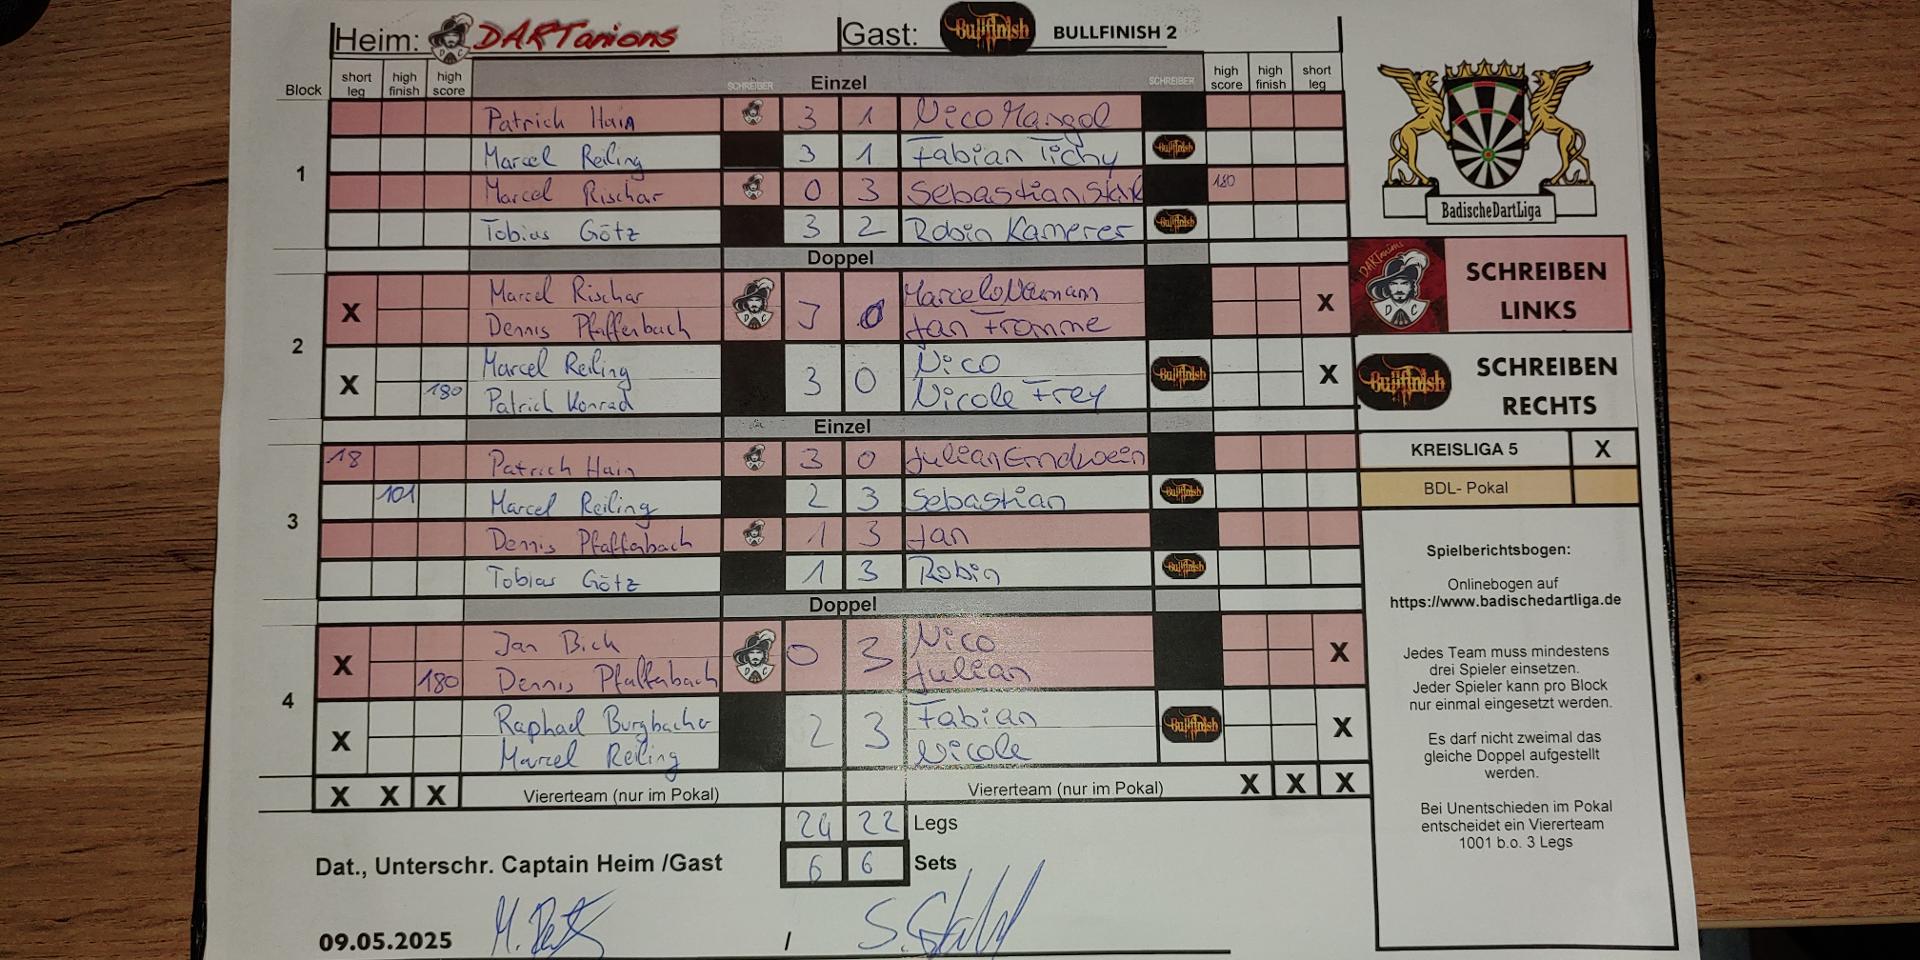 Heim: DARTanions Gast: Bullfinish BULLFINISH 2
Block short leg high finish high score SCHREIBER Einzel SCHREIBER high score high finish short leg
1
Patrick Hain 3 1 Nico Mangol
Marcel Reiling 3 1 Fabian Tichy Bullfinish
Marcel Rischar 0 3 Sebastian 180
Tobias Götz 3 2 Robin Kamerer Bullfinish
Doppel
2
X Marcel Rischar 3 0 X
Dennis Pfaffenbach Jan Fromme
X Marcel Reiling 3 0 Nico Bullfinish X
180 Patrick Konrad Nicole Frey
Einzel
3
18 Patrick Hain 3 0 Julian
101 Marcel Reiling 2 3 Sebastian Bullfinish
Dennis Pfaffenbach 1 3 Jan
Tobias Götz 1 3 Robin Bullfinish
Doppel
4
X Jan Bick 0 3 Nico X
180 Dennis Pfaffenbach Julian
X Raphael Burgbacher 2 3 Fabian Bullfinish X
Marcel Reiling Nicole
X X X Viererteam (nur im Pokal) Viererteam (nur im Pokal) X X X
24 22 Legs
Dat., Unterschr. Captain Heim /Gast 6 6 Sets
09.05.2025 /
BadischeDartLiga
DARTanions
DC
SCHREIBEN
LINKS
Bullfinish
SCHREIBEN
RECHTS
KREISLIGA 5 X
BDL- Pokal
Spielberichtsbogen:
Onlinebogen auf
https://www.badischedartliga.de
Jedes Team muss mindestens
drei Spieler einsetzen.
Jeder Spieler kann pro Block
nur einmal eingesetzt werden.
Es darf nicht zweimal das
gleiche Doppel aufgestellt
werden.
Bei Unentschieden im Pokal
entscheidet ein Viererteam
1001 b.o. 3 Legs